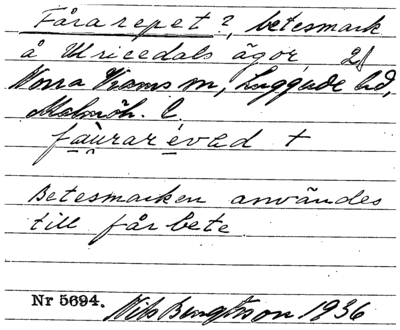 Fårarepet?, betesmark
å Ulricedals ägor, 21
Norra Vrams sn, Luggude hd,
Malmöh. l.
faurarévad +
Betesmarken användes
till fårbete
Nr 5694. Nils Bengtsson 1936